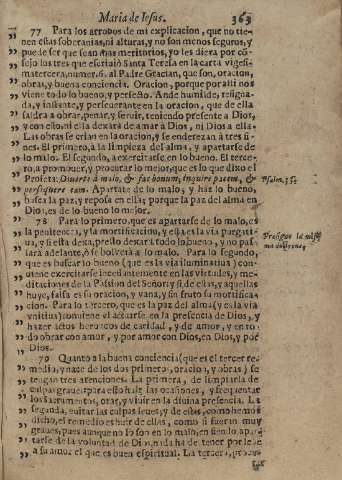 Maria de Iesus. 363
77 Para los arrobos de mi explicacion, que no tie-
nen estas soberanias, ni alturas, y no son menos seguros, y
puede ser que sean mas meritorios, yo les diera por cō-
sejo los tres que escriuiò Santa Teresa en la carta vigesi-
matercera, numer. 6. al Padre Gracian, que son, oracion,
obras, y buena conciencia. Oracion, porque por alli nos
viene todo lo bueno, y perfecto. Ande humilde, resigna-
da, y instante, y perseuerante en la oracion, que de ella
saldrà a obrar, penar, y seruir, teniendo presente a Dios,
y con esto, ni ella dexarà de amar à Dios, ni Dios a ella
Las obras se crian en la oracion, y se enderezan à tres fi-
nes. El primero, à la limpieza del alma, y apartarse de
lo malo. El segundo, a exercitarse en lo bueno. El terce-
ro, a promouer, y procurar lo mejor, que es lo que dixo el
Profeta: Diuerte à malo, & fac bonum, inquire pacem, &
persequere eam. Apartate de lo malo, y haz lo bueno,
busca la paz, y reposa en ella; porque la paz del alma en
Dios, es de lo bueno lo mejor.
Psalm. 33.
78 Para lo primero, que es apartarse de lo malo, es
la penitencia, y la mortificacion, y esta es la via purgati-
ua, y si esta dexa, presto dexarà todo lo bueno, y no pas-
sarà adelante, ò se bolverà a lo malo. Para lo segundo,
que es buscar lo bueno (que es la via iluminatiua) con-
uiene exercitarse incessantemente en las virtudes, y me-
ditaciones de la Passion del Señor; y si de estas, y aquellas
huye, falsa es su oracion, y vana, y sin fruto su mortifica-
cion. Para lo tercero, que es la paz del alma (y es la via
vnitiua) conuiene el actuarse en la presencia de Dios, y
hazer actos heroicos de caridad, y de amor, y en to-
do obrar con amor, y por amor con Dios, en Dios, y por
Dios.
Prosigue la misma
79 Quanto a la buena conciencia (que es el tercer re-
medio, y nace de los dos primeros, oracion, y obras) se
tengan tres atenciones. La primera, de limpiarla de
culpas graues: para esto huir las ocasiones, y frequentar
los Sacramentos, orar, y viuir en la diuina presencia. La
segunda, euitar las culpas leues; y de estas, como hemos
dicho, el remedio es huir de ellas, como si fueran muy
graues, pues aunque no lo son en lo malo, siendo apar-
tarse de la voluntad de Dios, nada ha de tener por leue
a su amor el que es buen espiritual. La tercera, procu-